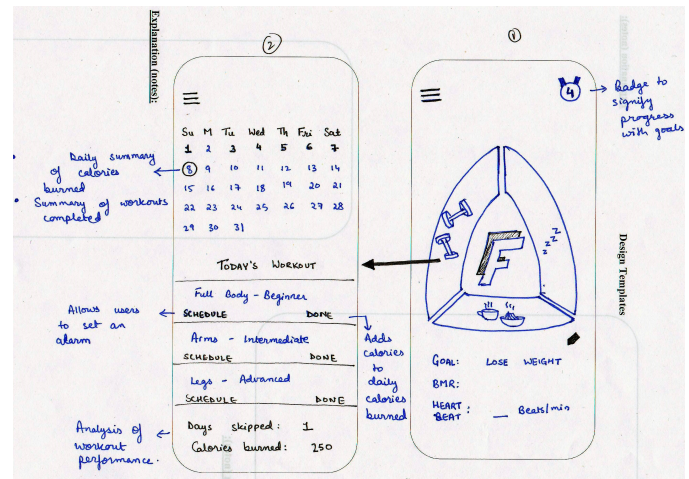 Explanation (notes):
2
Su M Tu Wed Th Fri Sat
1 2 3 4 5 6 7
8 9 10 11 12 13 14
15 16 17 18 19 20 21
22 23 24 25 26 27 28
29 30 31
• Daily summary
of calories
burned
• Summary of workouts
completed
TODAY'S WORKOUT
Full Body - Beginner
SCHEDULE DONE
Arms - Intermediate
SCHEDULE DONE
Legs - Advanced
SCHEDULE DONE
Days skipped: 1
Calories burned: 250
Allows users
to set an
alarm
Adds
calories
to
daily
calories
burned
Analysis of
workout
performance.
1
4
Badge to
signify
progress
with goals
F
z z z
Design Templates
GOAL: LOSE WEIGHT
BMR:
HEART
BEAT : __ Beats/min